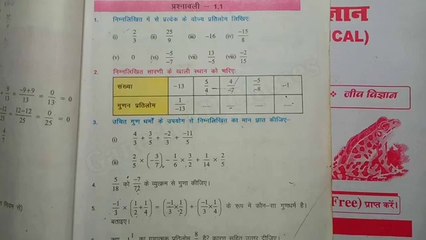 प्रश्नावली - 1.1
1. निम्नलिखित में से प्रत्येक के योज्य प्रतिलोम लिखिए
(i) 2/3 (ii) 25/9 (iii) -16 (iv) -15/8
(v) 0 (vi) -5/-7 (vii) 13/-5 (viii) -1/15
2. निम्नलिखित सारणी के खाली स्थान को भरिए:
संख्या -13 5/4 4/-7 -5/-8 -1
गुणन प्रतिलोम 1/-13 — — — —
3. उचित गुण धर्मों के उपयोग से निम्नलिखित का मान ज्ञात कीजिए-
(i) 4/3 + 3/5 + -2/3 + -11/5
(ii) 2/5 × (-3/7) - 1/6 × 3/2 + 1/14 × 2/5
4. 5/18 को -7/72 के व्युत्क्रम से गुणा कीजिए।
5. -1/3 × (1/2 + 1/4) = (-1/3 × 1/2) + (-1/3 × 1/4) के रूप में कौन-सा गुणधर्म है।
बताइए।
+ -9+9/13 = 0/13 = 0
12-12/25 = 0/25 = 0
ज्ञान
CAL)
जीव विज्ञान
(Free) प्राप्त करें।